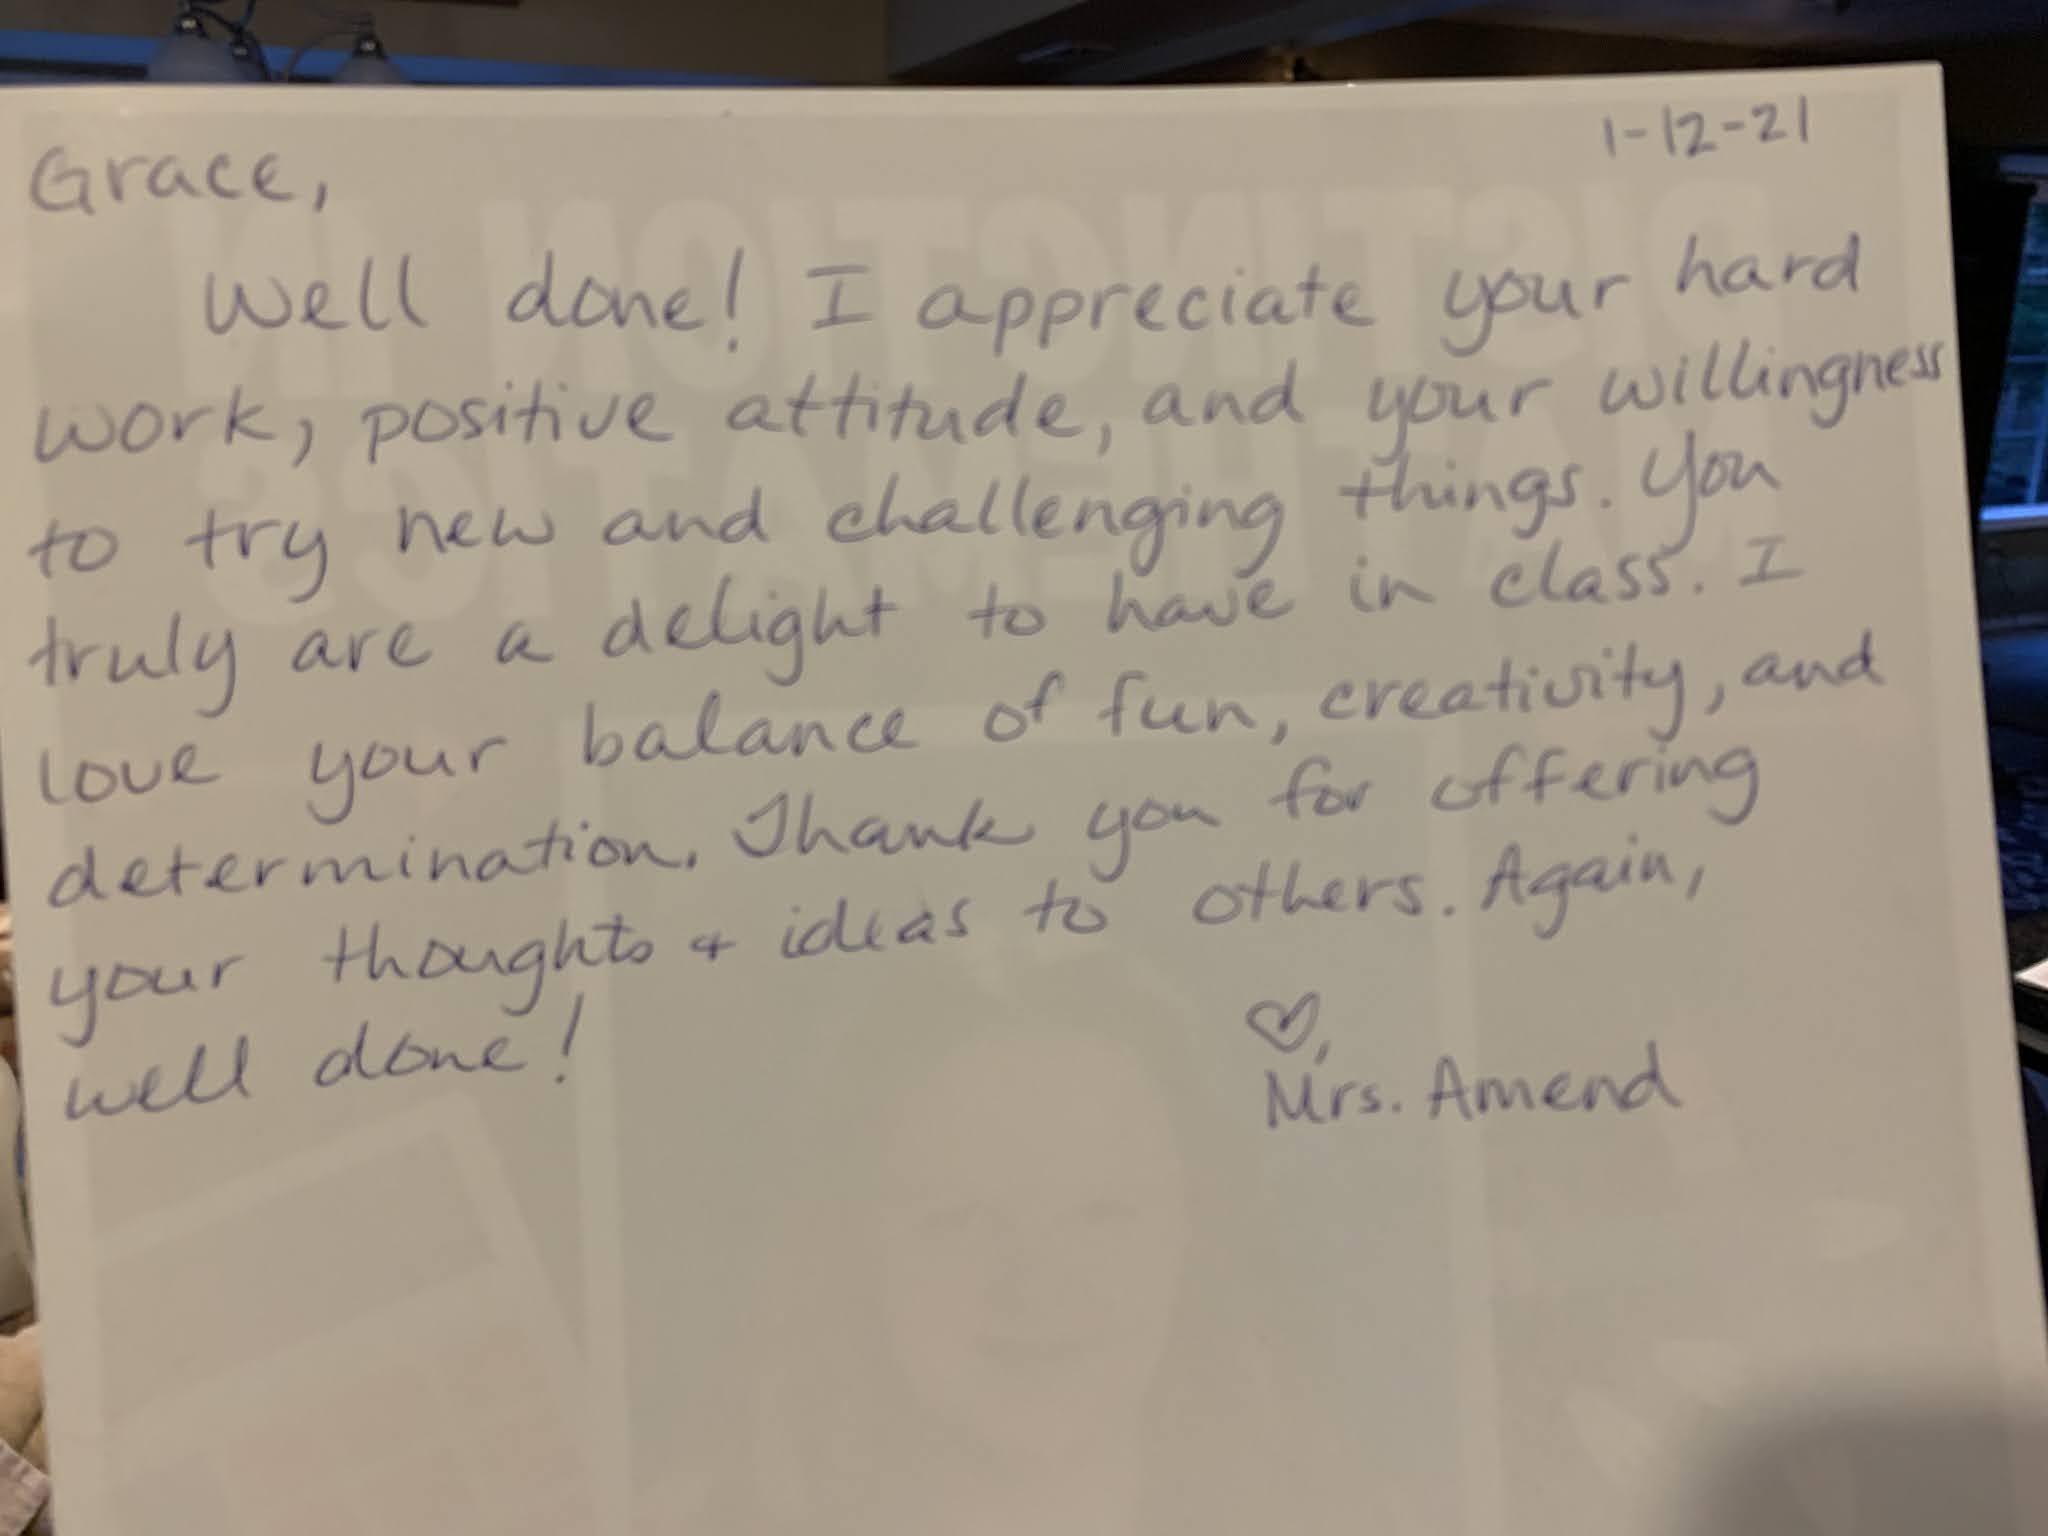 1-12-21
Grace,
Well done! I appreciate your hard
work, positive attitude, and your willingness
to try new and challenging things. You
truly are a delight to have in class. I
love your balance of fun, creativity, and
determination. Thank you for offering
your thoughts + ideas to others. Again,
well done!
♡,
Mrs. Amend
DISTINCTION IN
MATHEMATICS